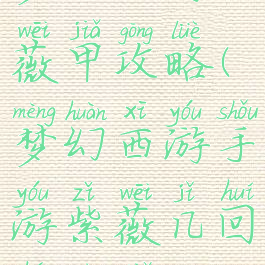 wēi jiǎ gōng lüè
薇甲攻略(
mèng huàn xī yóu shǒu
梦幻西游手
yóu zǐ wēi jǐ huí
游紫薇几回